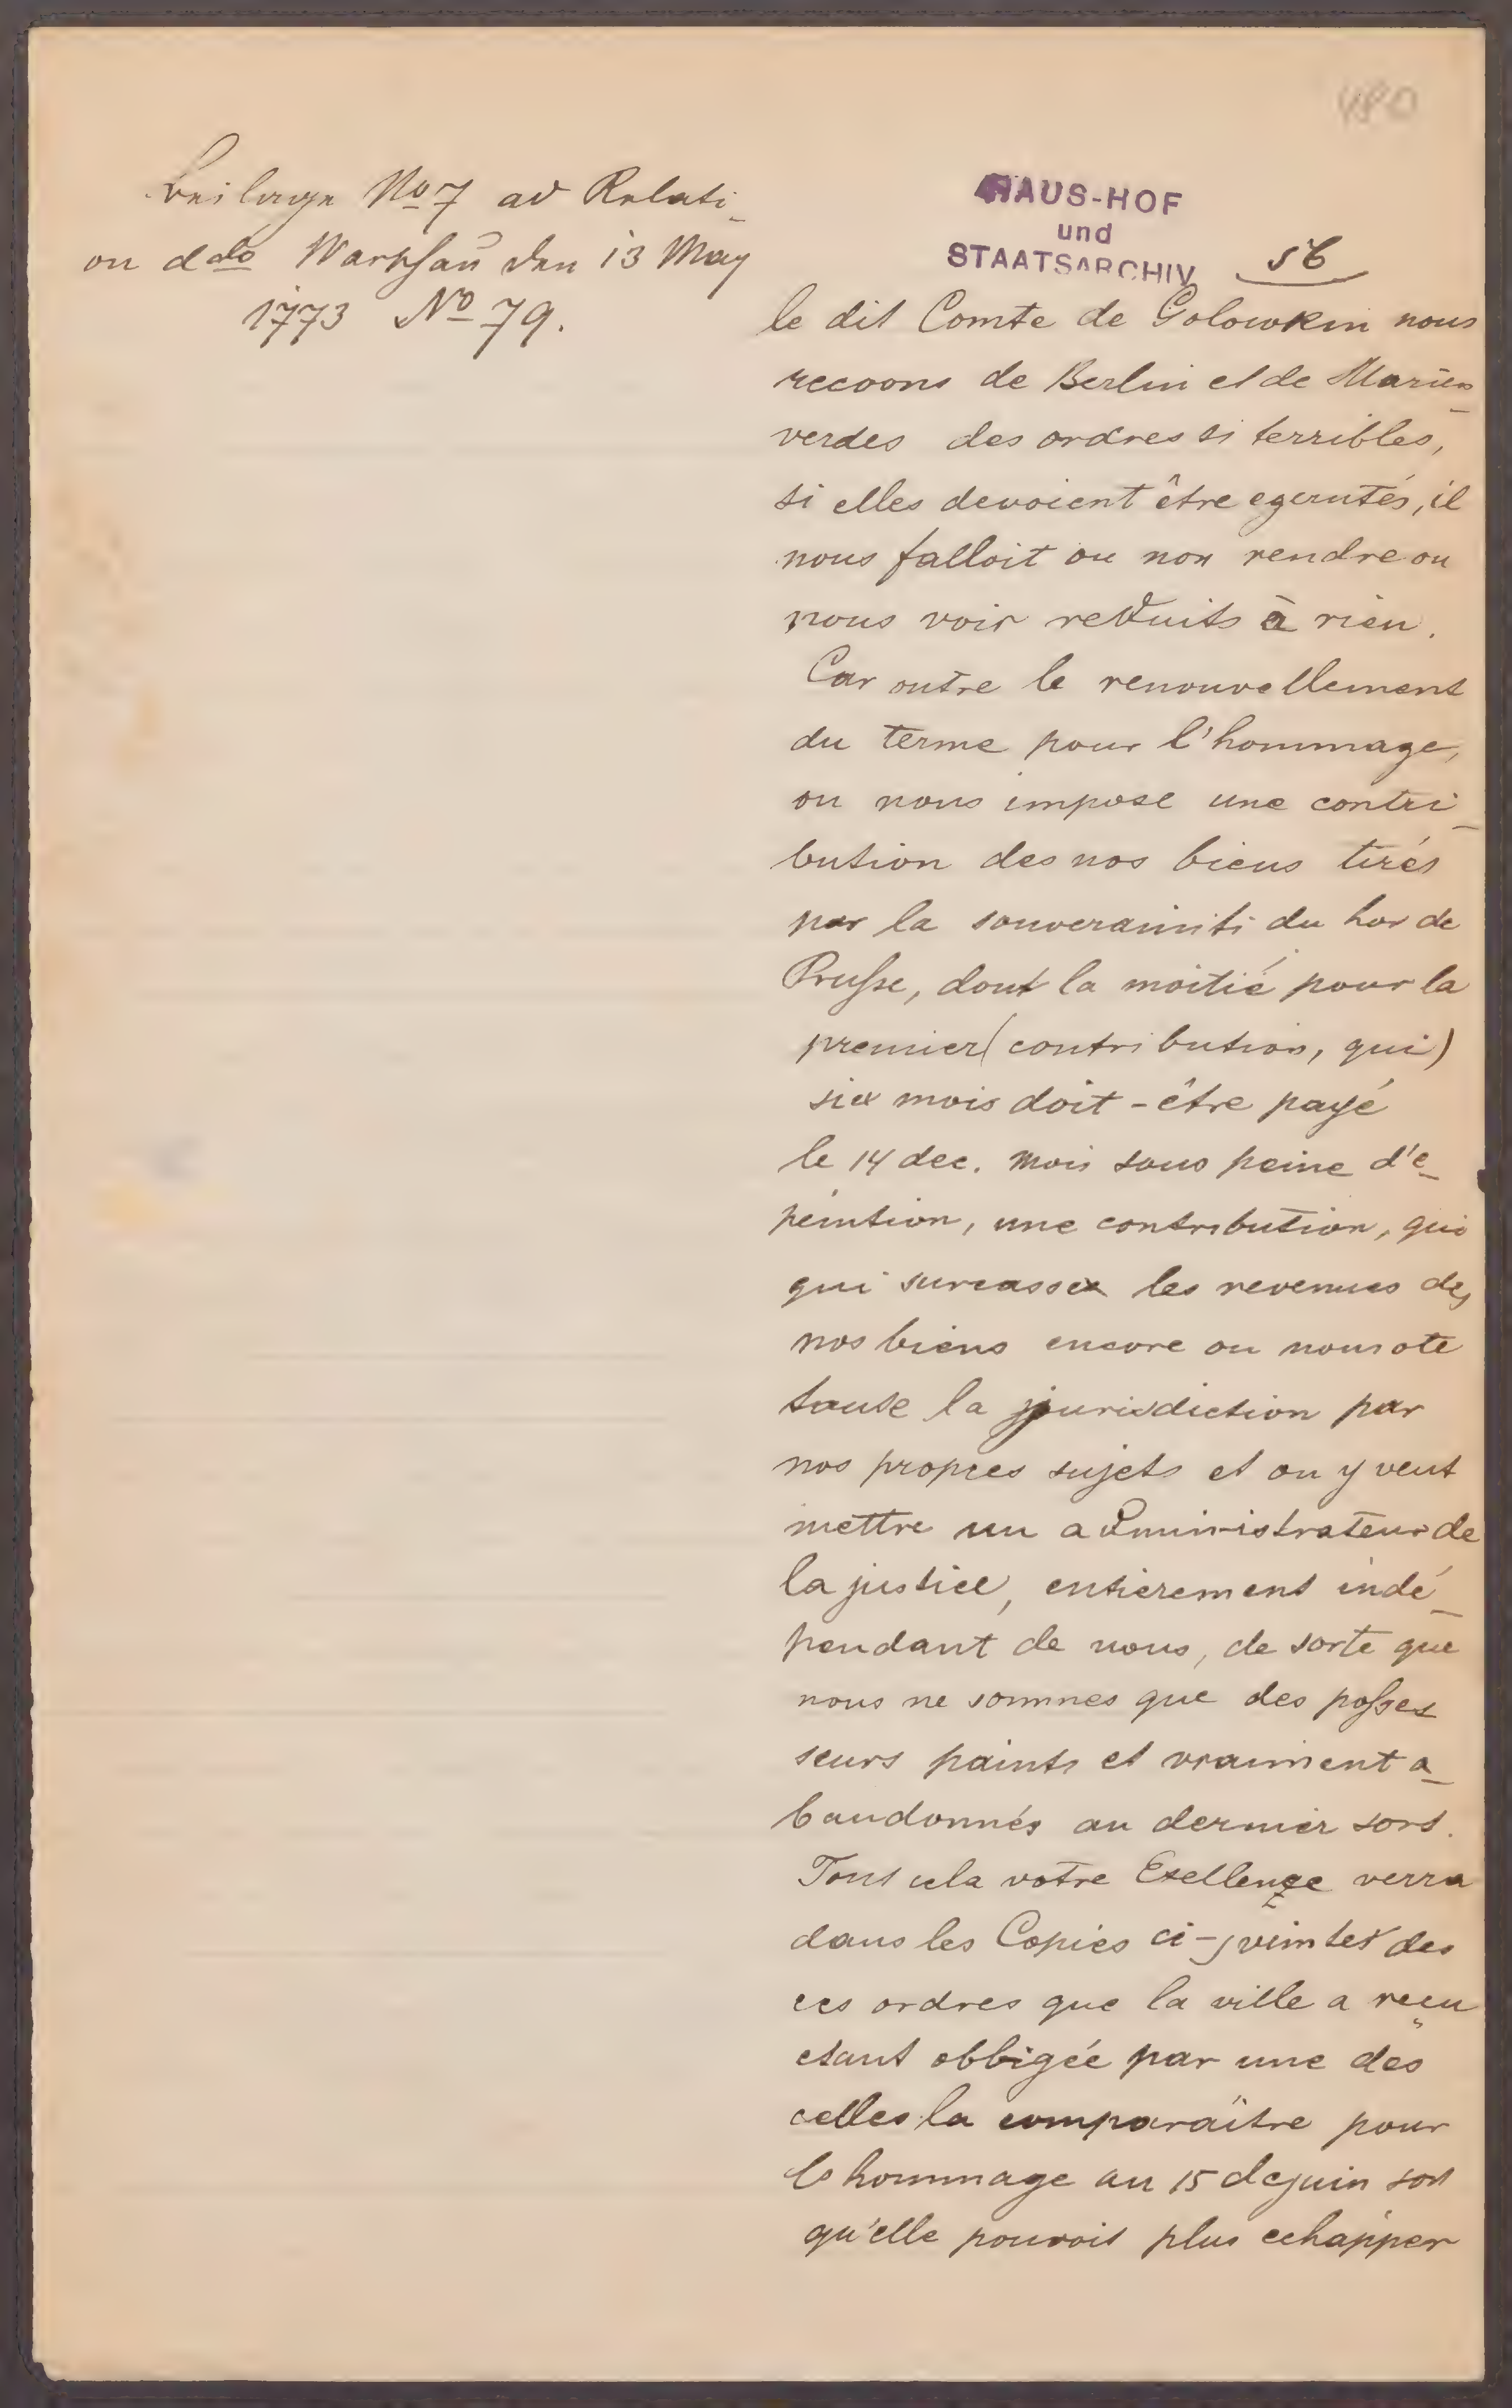 480
Beilage No 7 ad Relati-
on ddo Warschau den 13 May
1773 No 79.
HAUS-HOF
und
STAATSARCHIV
56
le dit Comte de Golowkin nous
recoons de Berlin et de Marien-
verdes des ordres si terribles,
si elles devoient être egerutés, il
nous falloit ou non rendre ou
nous voir reduits à rien.
Car outre le renouvellement
du terme pour l'hommage,
on nous impose une contri-
bution des nos biens tirés
par la souverainiti du hor de
Prusse, dont la moitié pour la
premier (contribution, qui)
six mois doit-être payé
le 14 dec. mois sous peine d'e-
peintion, une contribution, qui
qui surcasse les revenues des
nos biens encore on nous ote
toute la jurisdiction par
nos propres sujets et on y veut
mettre un administrateur de
la justice, entièrement indé-
pendant de nous, de sorte que
nous ne sommes que des posses
seurs paints et vraiment a-
bandonnés au dernier sort.
Tout cela votre Exellenze verra
dans les Copies ci-jointes des
ces ordres que la ville a reçu
etant obbigée par une des
celles la comparaître pour
le hommage au 15 de juin son
qu'elle pouvoit plus echapper